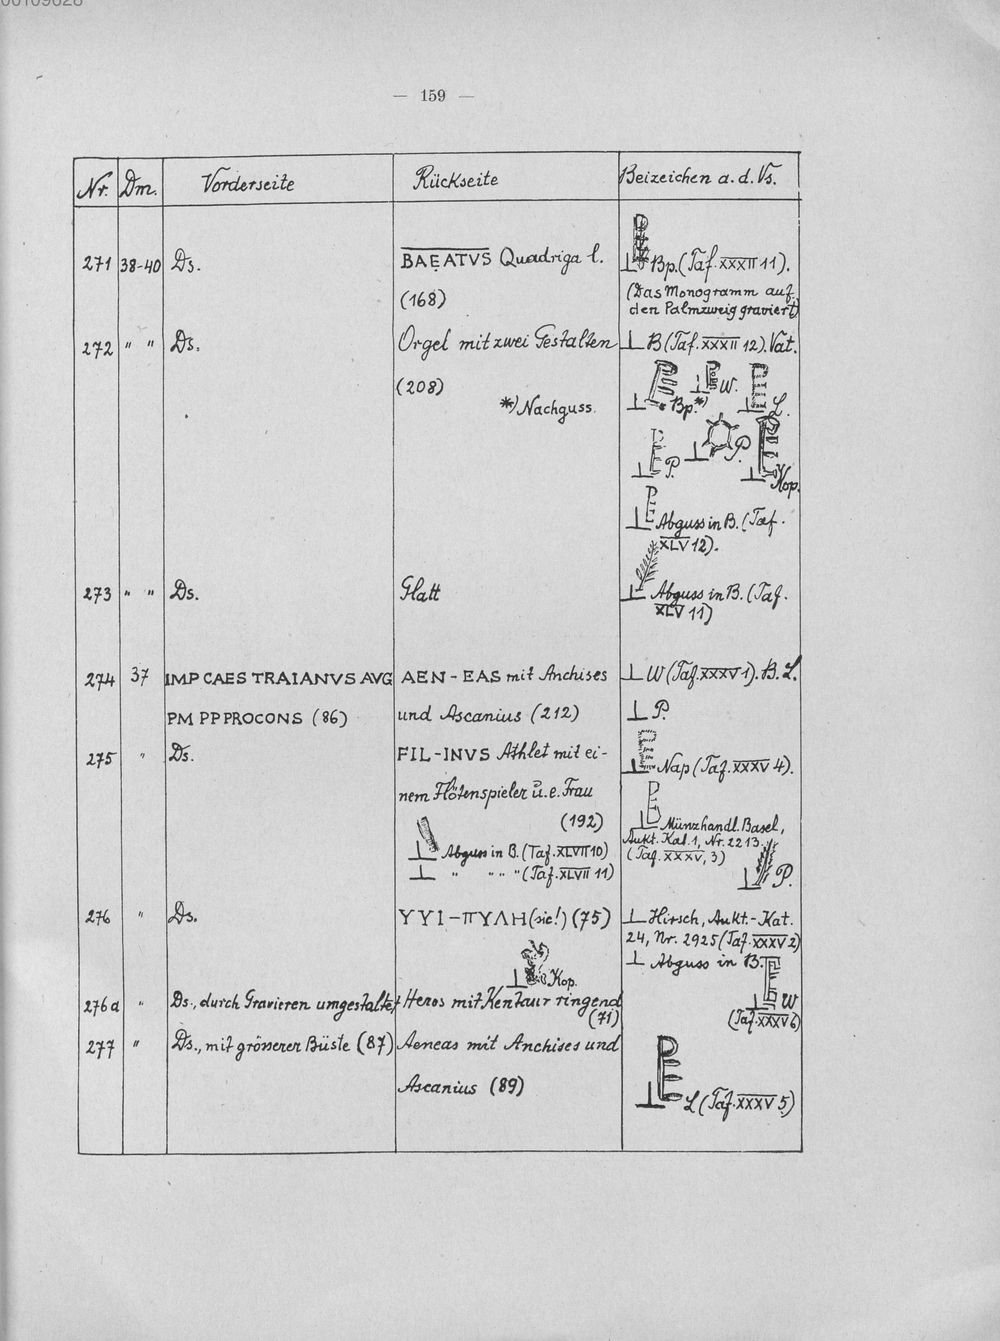 00109028
— 159 —
Nr. Dm. Vorderseite Rückseite Beizeichen a. d. Vs.
271 38-40 Ds. BAEATVS Quadriga l. Bp. (Taf. XXXII 11).
(168) (Das Monogramm auf
den Palmzweig graviert)
272 " " Ds. Orgel mit zwei Gestalten B (Taf. XXXII 12). Vat.
(208) Bp.*) W. L.
*) Nachguss.
P. P. Kop.
Abguss in B. (Taf.
XLV 12).
273 " " Ds. Glatt Abguss in B. (Taf.
XLV 11)
274 37 IMP CAES TRAIANVS AVG AEN - EAS mit Anchises W (Taf. XXXV 1). B. L.
PM PP PROCONS (86) und Ascanius (212) P.
275 " Ds. FIL-INVS Athlet mit ei- Nap (Taf. XXXV 4).
nem Flötenspieler u. e. Frau
(192) Münzhandl. Basel,
Aukt. Kat. 1, Nr. 2213.
Abguss in B. (Taf. XLVII 10) (Taf. XXXV, 3)
" " " " (Taf. XLVII 11) P.
276 " Ds. ΥΥΙ-ΠΥΛΗ (sic!) (75) Hirsch, Aukt.-Kat.
24, Nr. 2925 (Taf. XXXV 2)
Kop. Abguss in B.
276a " Ds., durch Gravieren umgestaltet Heros mit Kentaur ringend W
(71) (Taf. XXXV 6)
277 " Ds., mit grösserer Büste (87) Aeneas mit Anchises und
Ascanius (89) L (Taf. XXXV 5)